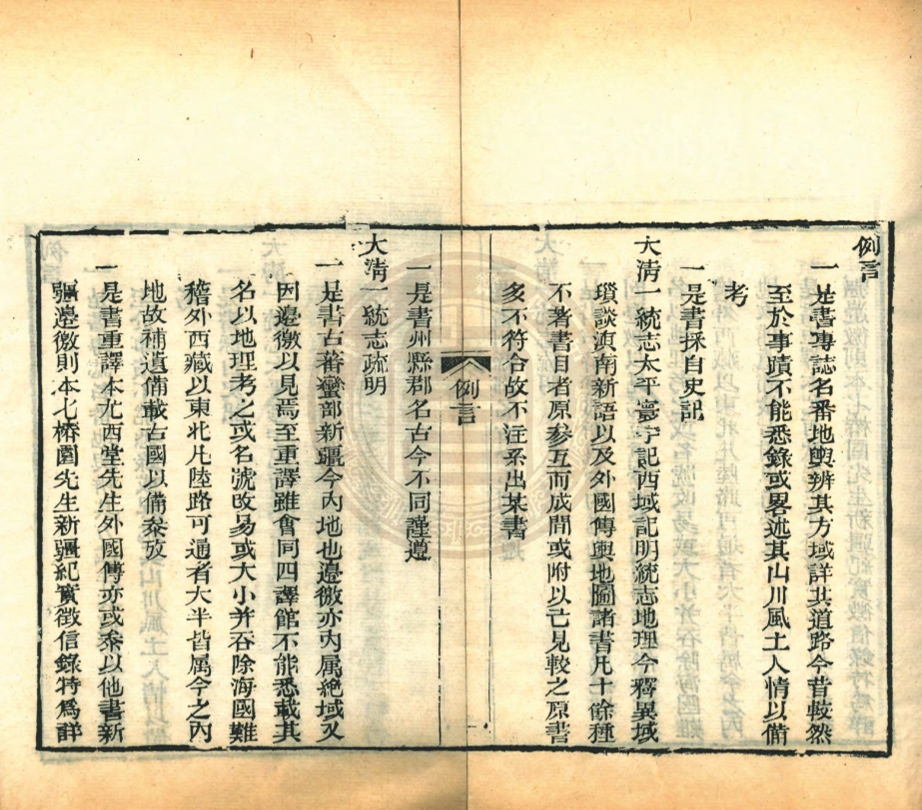 例言
一是書專誌名番地輿辨其方域詳其道路今昔較然
至於事蹟不能悉錄或畧述其山川風土人情以備
考
一是書採自史記
大清一統志太平寰宇記西域記明統志地理今釋異域
瑣談滇南新語以及外國傳輿地圖諸書凡十餘種
不著書目者原參互而成間或附以己見較之原書
多不符合故不注系出某書
例言
一是書州縣郡名古今不同謹遵
大清一統志疏明
一是書古蕃蠻部新疆今內地也邊徼亦內属絕域又
因邊徼以見焉至重譯雖會同四譯館不能悉載其
名以地理考之或名號改易或大小并吞除海國難
稽外西藏以東北凡陸路可通者大半皆属今之內
地故補遺備載古國以備叅攷
一是書重譯本尤西堂先生外國傳亦或叅以他書新
疆邊徼則本七椿園先生新疆紀實徵信錄特爲詳